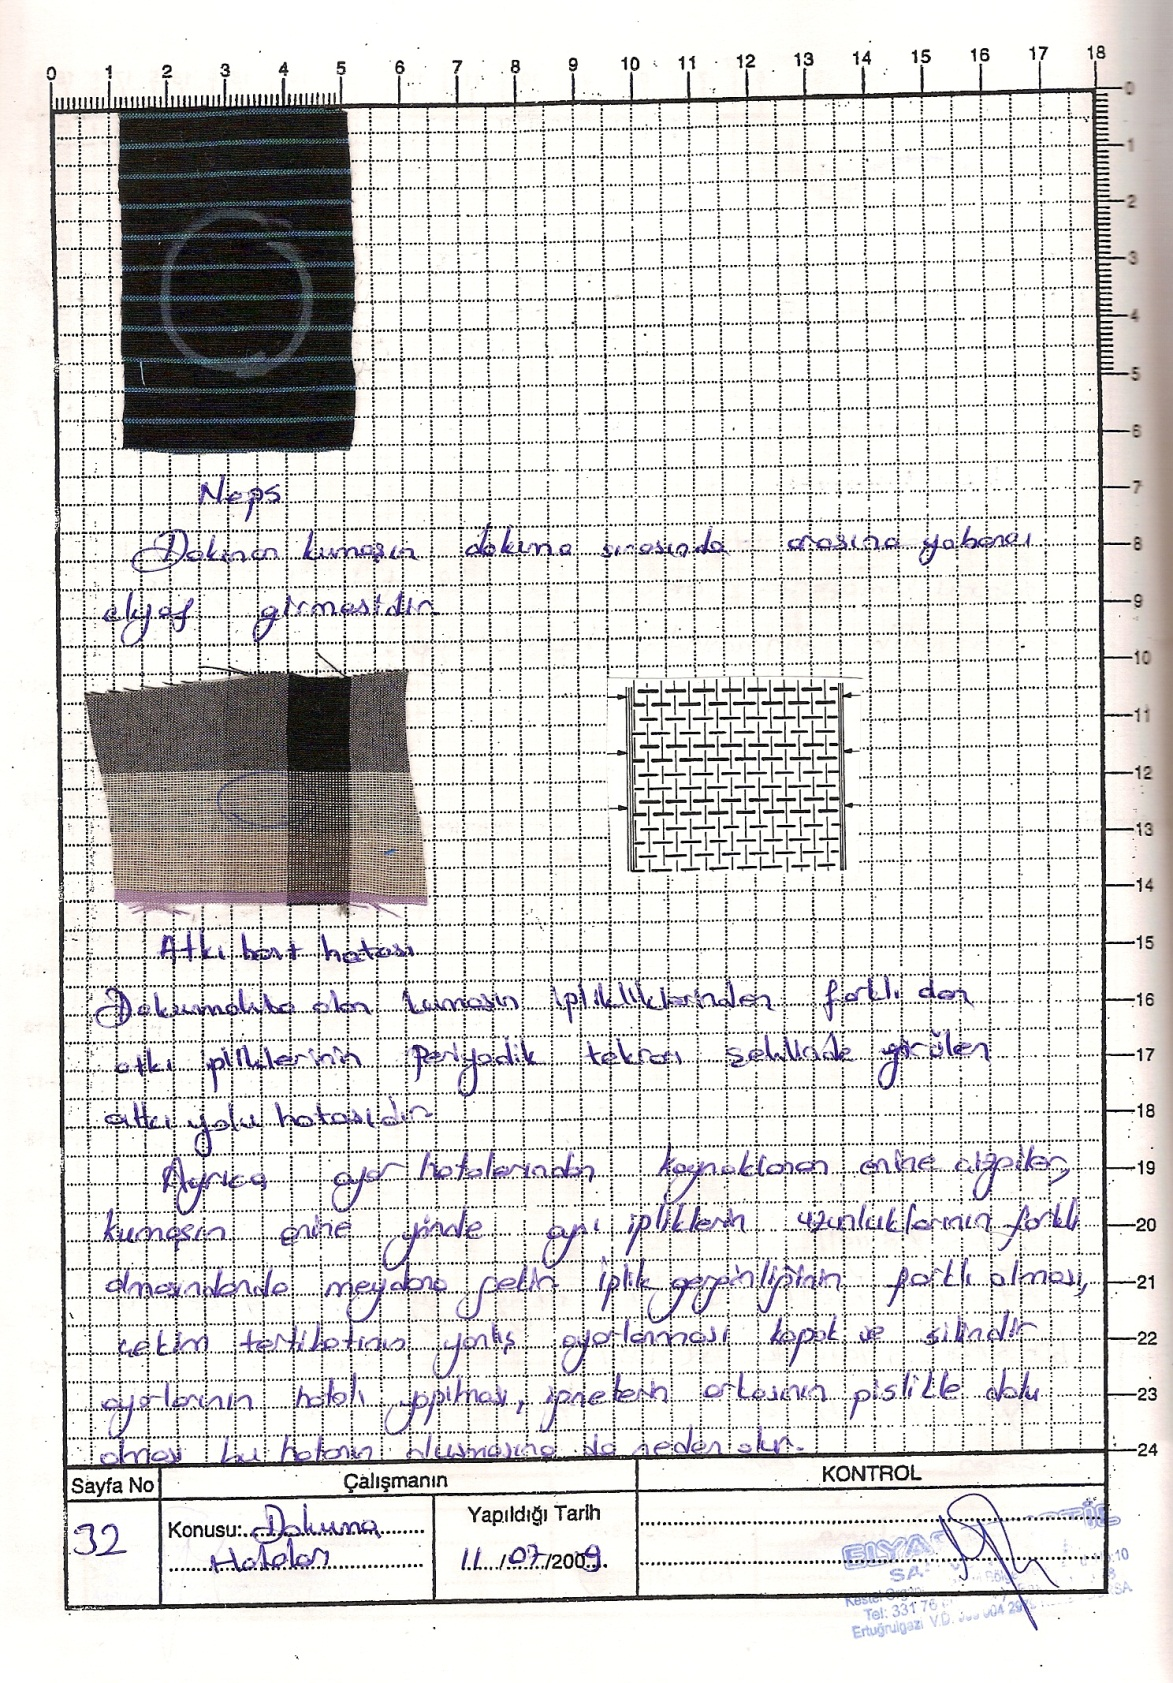 0 1 2 3 4 5 6 7 8 9 10 11 12 13 14 15 16 17 18
0
1
2
3
4
5
6
7
8
9
10
11
12
13
14
15
16
17
18
19
20
21
22
23
24
Neps
Dokunan kumaşın dokuma sırasında arasına yabancı
elyaf girmesidir
Atkı bant hatası
Dokumakta olan kumaşın iplikliklerinden farklı olan
atkı pliklerinin periyodik tekrarı şeklinde görülen
atkı yolu hatasıdır
Ayrıca ayar hatalarından kaynaklanan enine çizgiler,
kumaşın enine yönde aynı ipliklerin uzunluklarının farklı
olmasındanda meydana gelir iplik gerginliğinin farklı olması,
çekim tertibatının yanlış ayarlanması kapak ve silindir
ayarlarının hatalı yapılması, iğnelerin arkasının pislikle dolu
olması bu hatanın oluşmasına da neden olur.
Sayfa No
32
Çalışmanın
Konusu: Dokuma
Hataları
Yapıldığı Tarih
11/07/2009
KONTROL
Tel: 331 76
Ertuğrulgazi V.D.